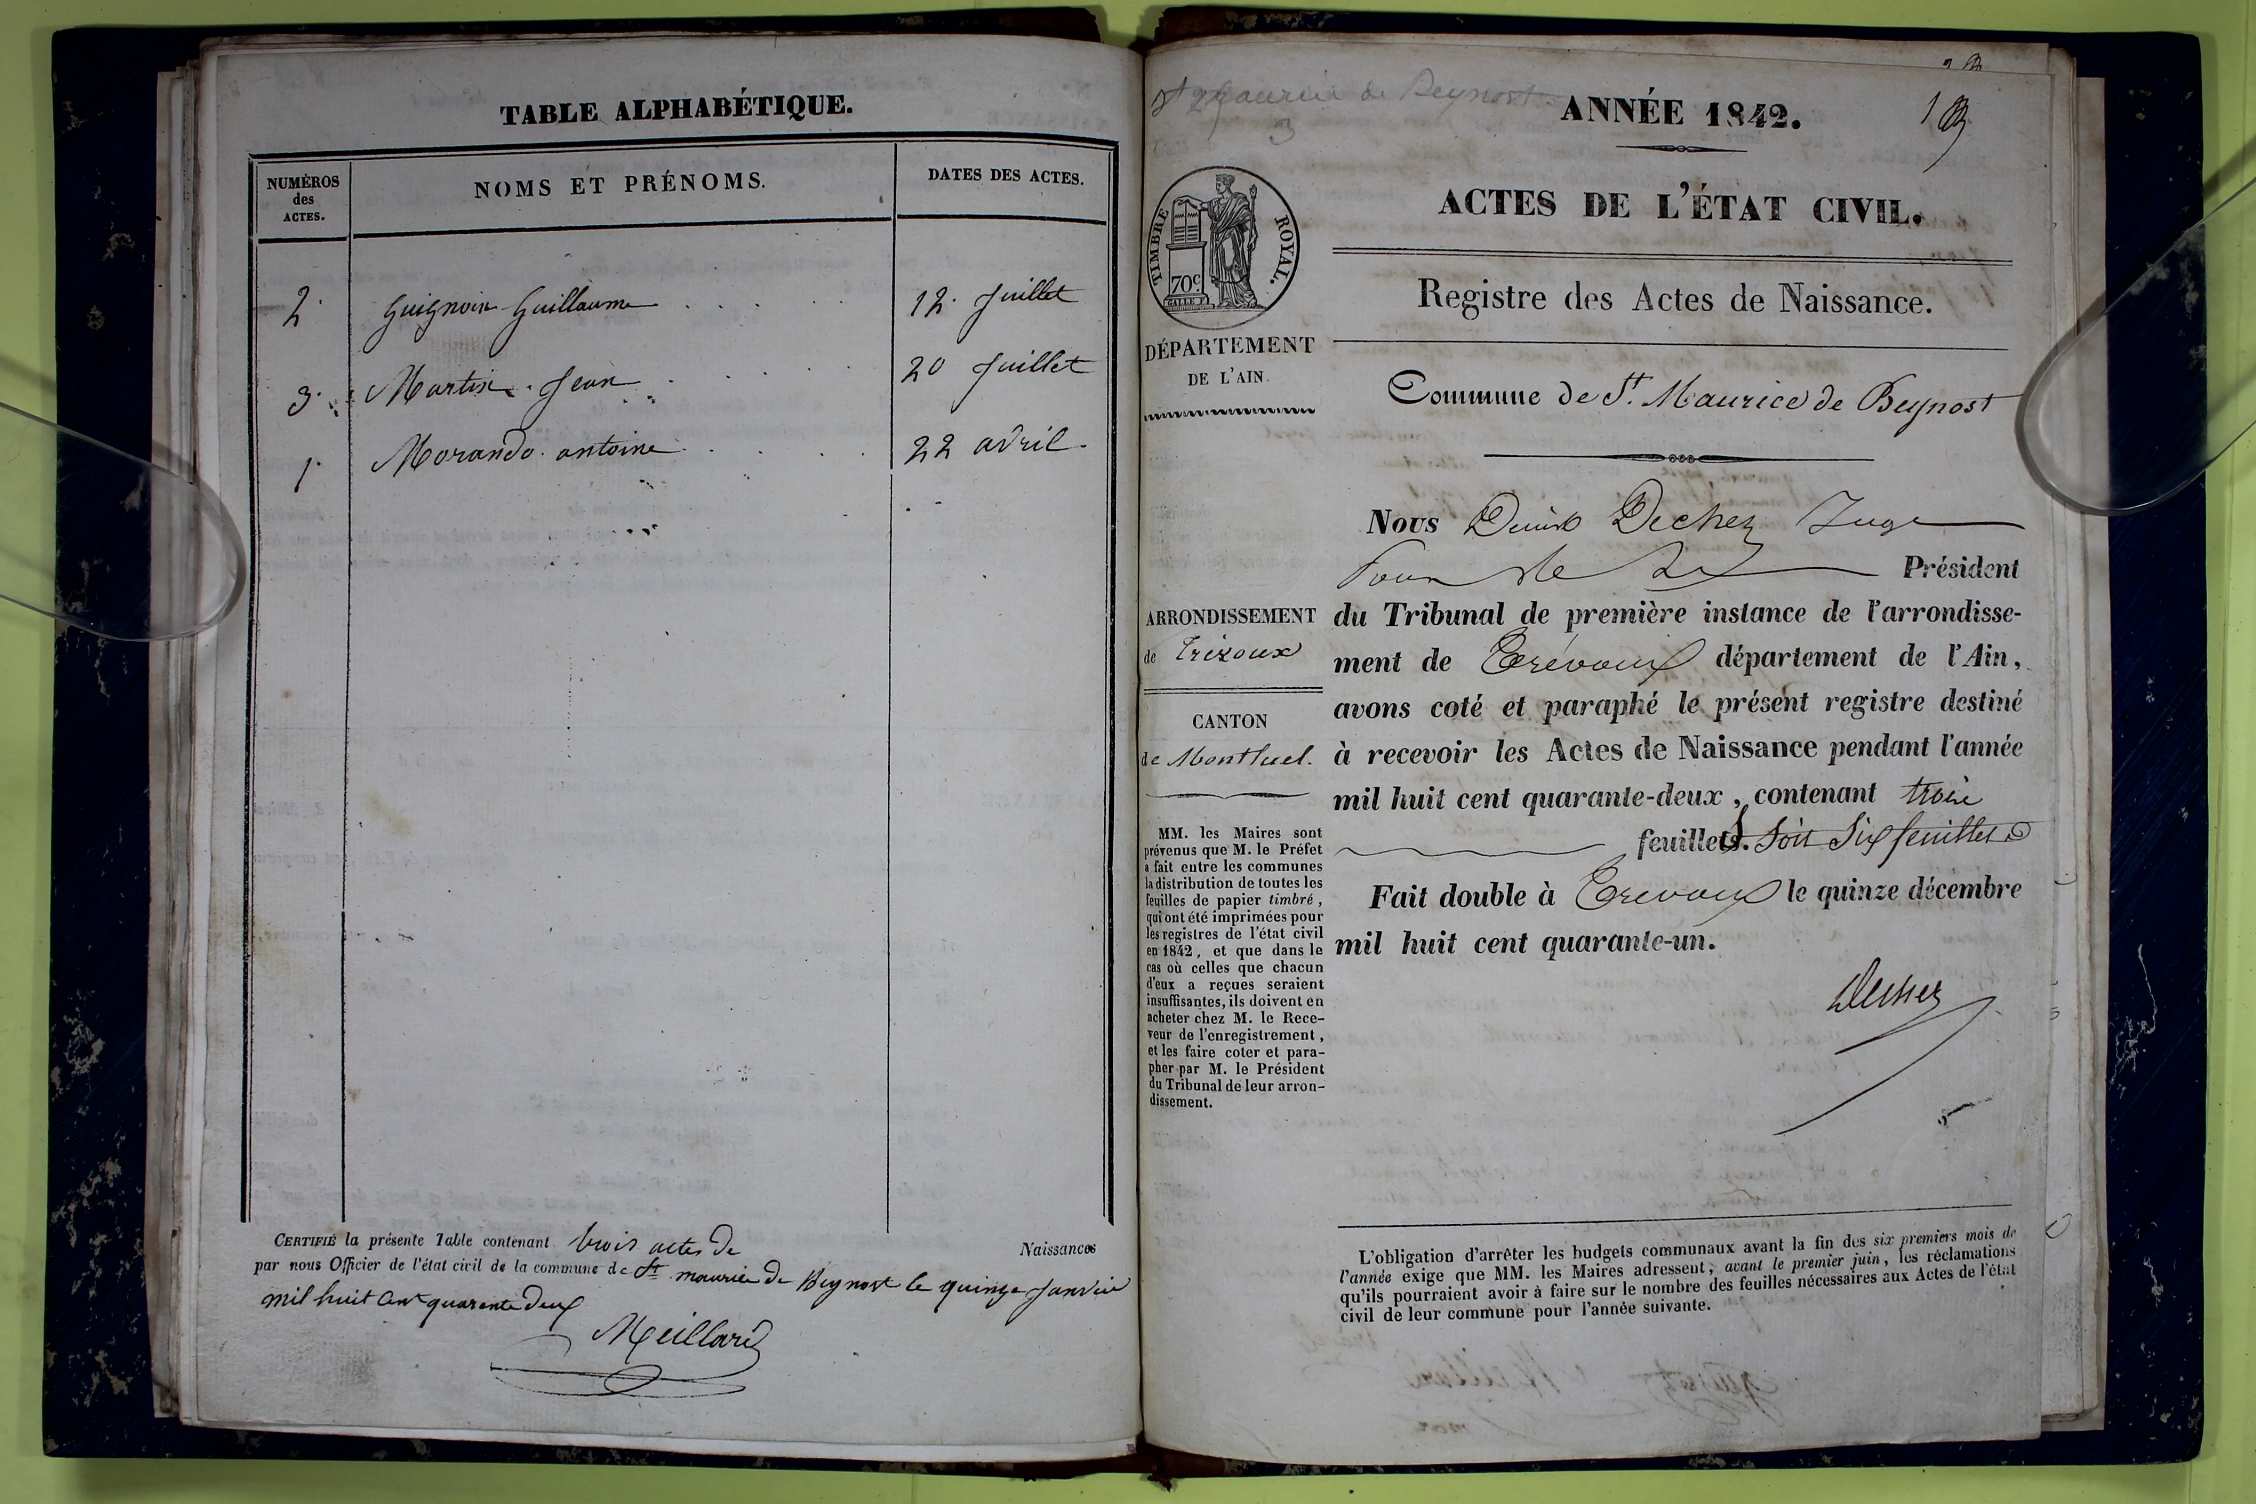 TABLE ALPHABÉTIQUE.
NUMÉROS
des
ACTES.
NOMS ET PRÉNOMS.
DATES DES ACTES.
2. Guignoin Guillaume 12. Juillet
3. Martin. Jean 20 Juillet
1. Morando. antoine 22 avril.
CERTIFIÉ la présente Table contenant trois actes de Naissances
par nous Officier de l'état civil de la commune de St. maurice de Beynost le quinze Janvier
mil huit cent quarante deux
Meillard
St Maurice de Beynost
ANNÉE 1842.
1
ACTES DE L'ÉTAT CIVIL.
TIMBRE ROYAL.
70c
Registre des Actes de Naissance.
DÉPARTEMENT
DE L'AIN.
Commune de St. Maurice de Beynost
Nous Denis Dechez Juge
Pour le Président
ARRONDISSEMENT
de Trévoux
CANTON
de Montluel.
du Tribunal de première instance de l'arrondisse-
ment de Trévoux département de l'Ain,
avons coté et paraphé le présent registre destiné
à recevoir les Actes de Naissance pendant l'année
mil huit cent quarante-deux, contenant trois
feuillets. soit Six feuillets
Fait double à Trevoux le quinze décembre
mil huit cent quarante-un.
Dechez
MM. les Maires sont
prévenus que M. le Préfet
a fait entre les communes
la distribution de toutes les
feuilles de papier timbré,
qui ont été imprimées pour
les registres de l'état civil
en 1842, et que dans le
cas où celles que chacun
d'eux a reçues seraient
insuffisantes, ils doivent en
acheter chez M. le Rece-
veur de l'enregistrement,
et les faire coter et para-
pher par M. le Président
du Tribunal de leur arron-
dissement.
L'obligation d'arrêter les budgets communaux avant la fin des six premiers mois de
l'année exige que MM. les Maires adressent, avant le premier juin, les réclamations
qu'ils pourraient avoir à faire sur le nombre des feuilles nécessaires aux Actes de l'état
civil de leur commune pour l'année suivante.